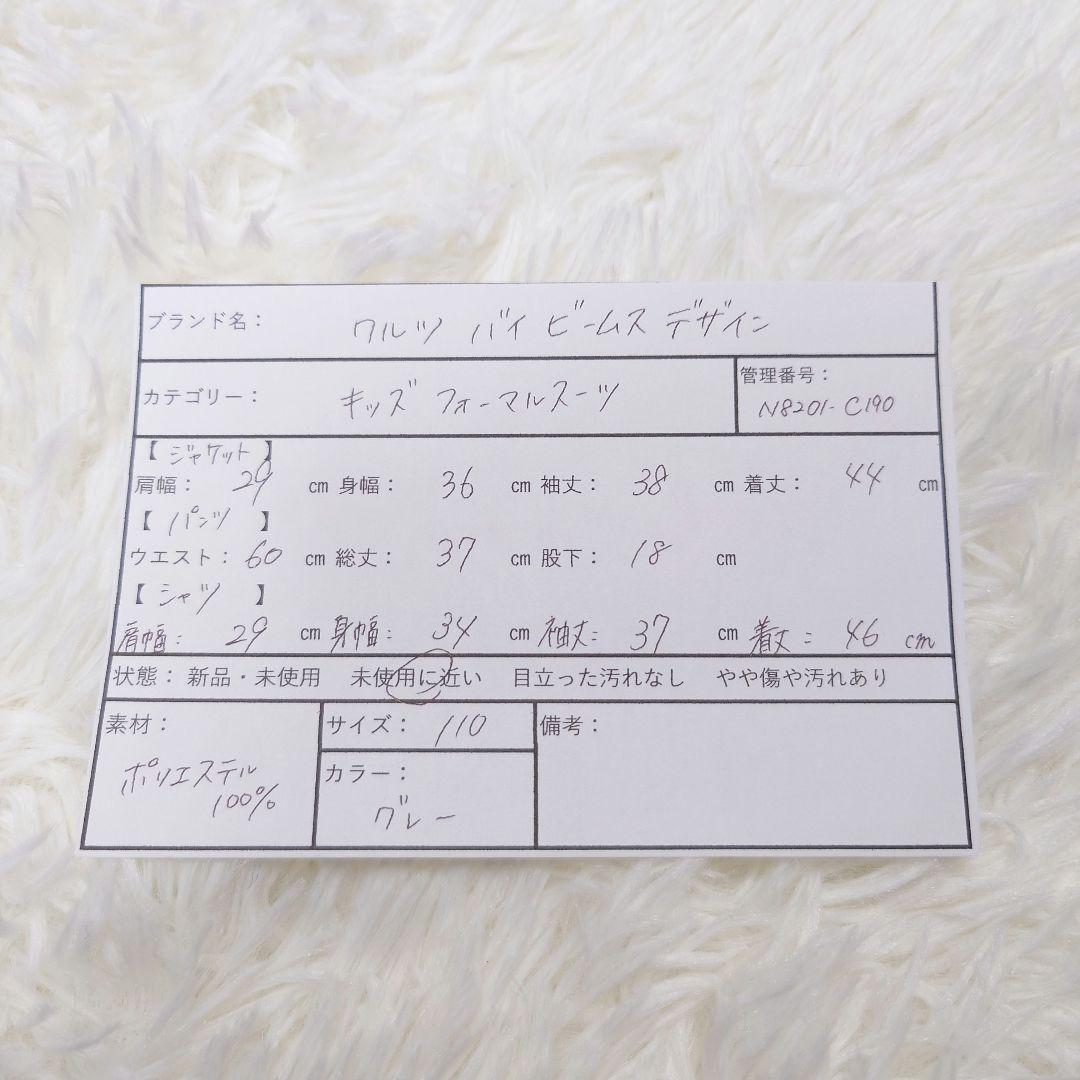 ブランド名： ワルツ バイ ビームス デザイン
カテゴリー： キッズ フォーマルスーツ
管理番号：
N8201-C190
【 ジャケット 】
肩幅： 29 cm 身幅： 36 cm 袖丈： 38 cm 着丈： 44 cm
【 パンツ 】
ウエスト： 60 cm 総丈： 37 cm 股下： 18 cm
【 シャツ 】
肩幅： 29 cm 身幅： 34 cm 袖丈： 37 cm 着丈： 46 cm
状態： 新品・未使用 未使用に近い 目立った汚れなし やや傷や汚れあり
素材：
ポリエステル
100%
サイズ： 110
カラー：
グレー
備考：